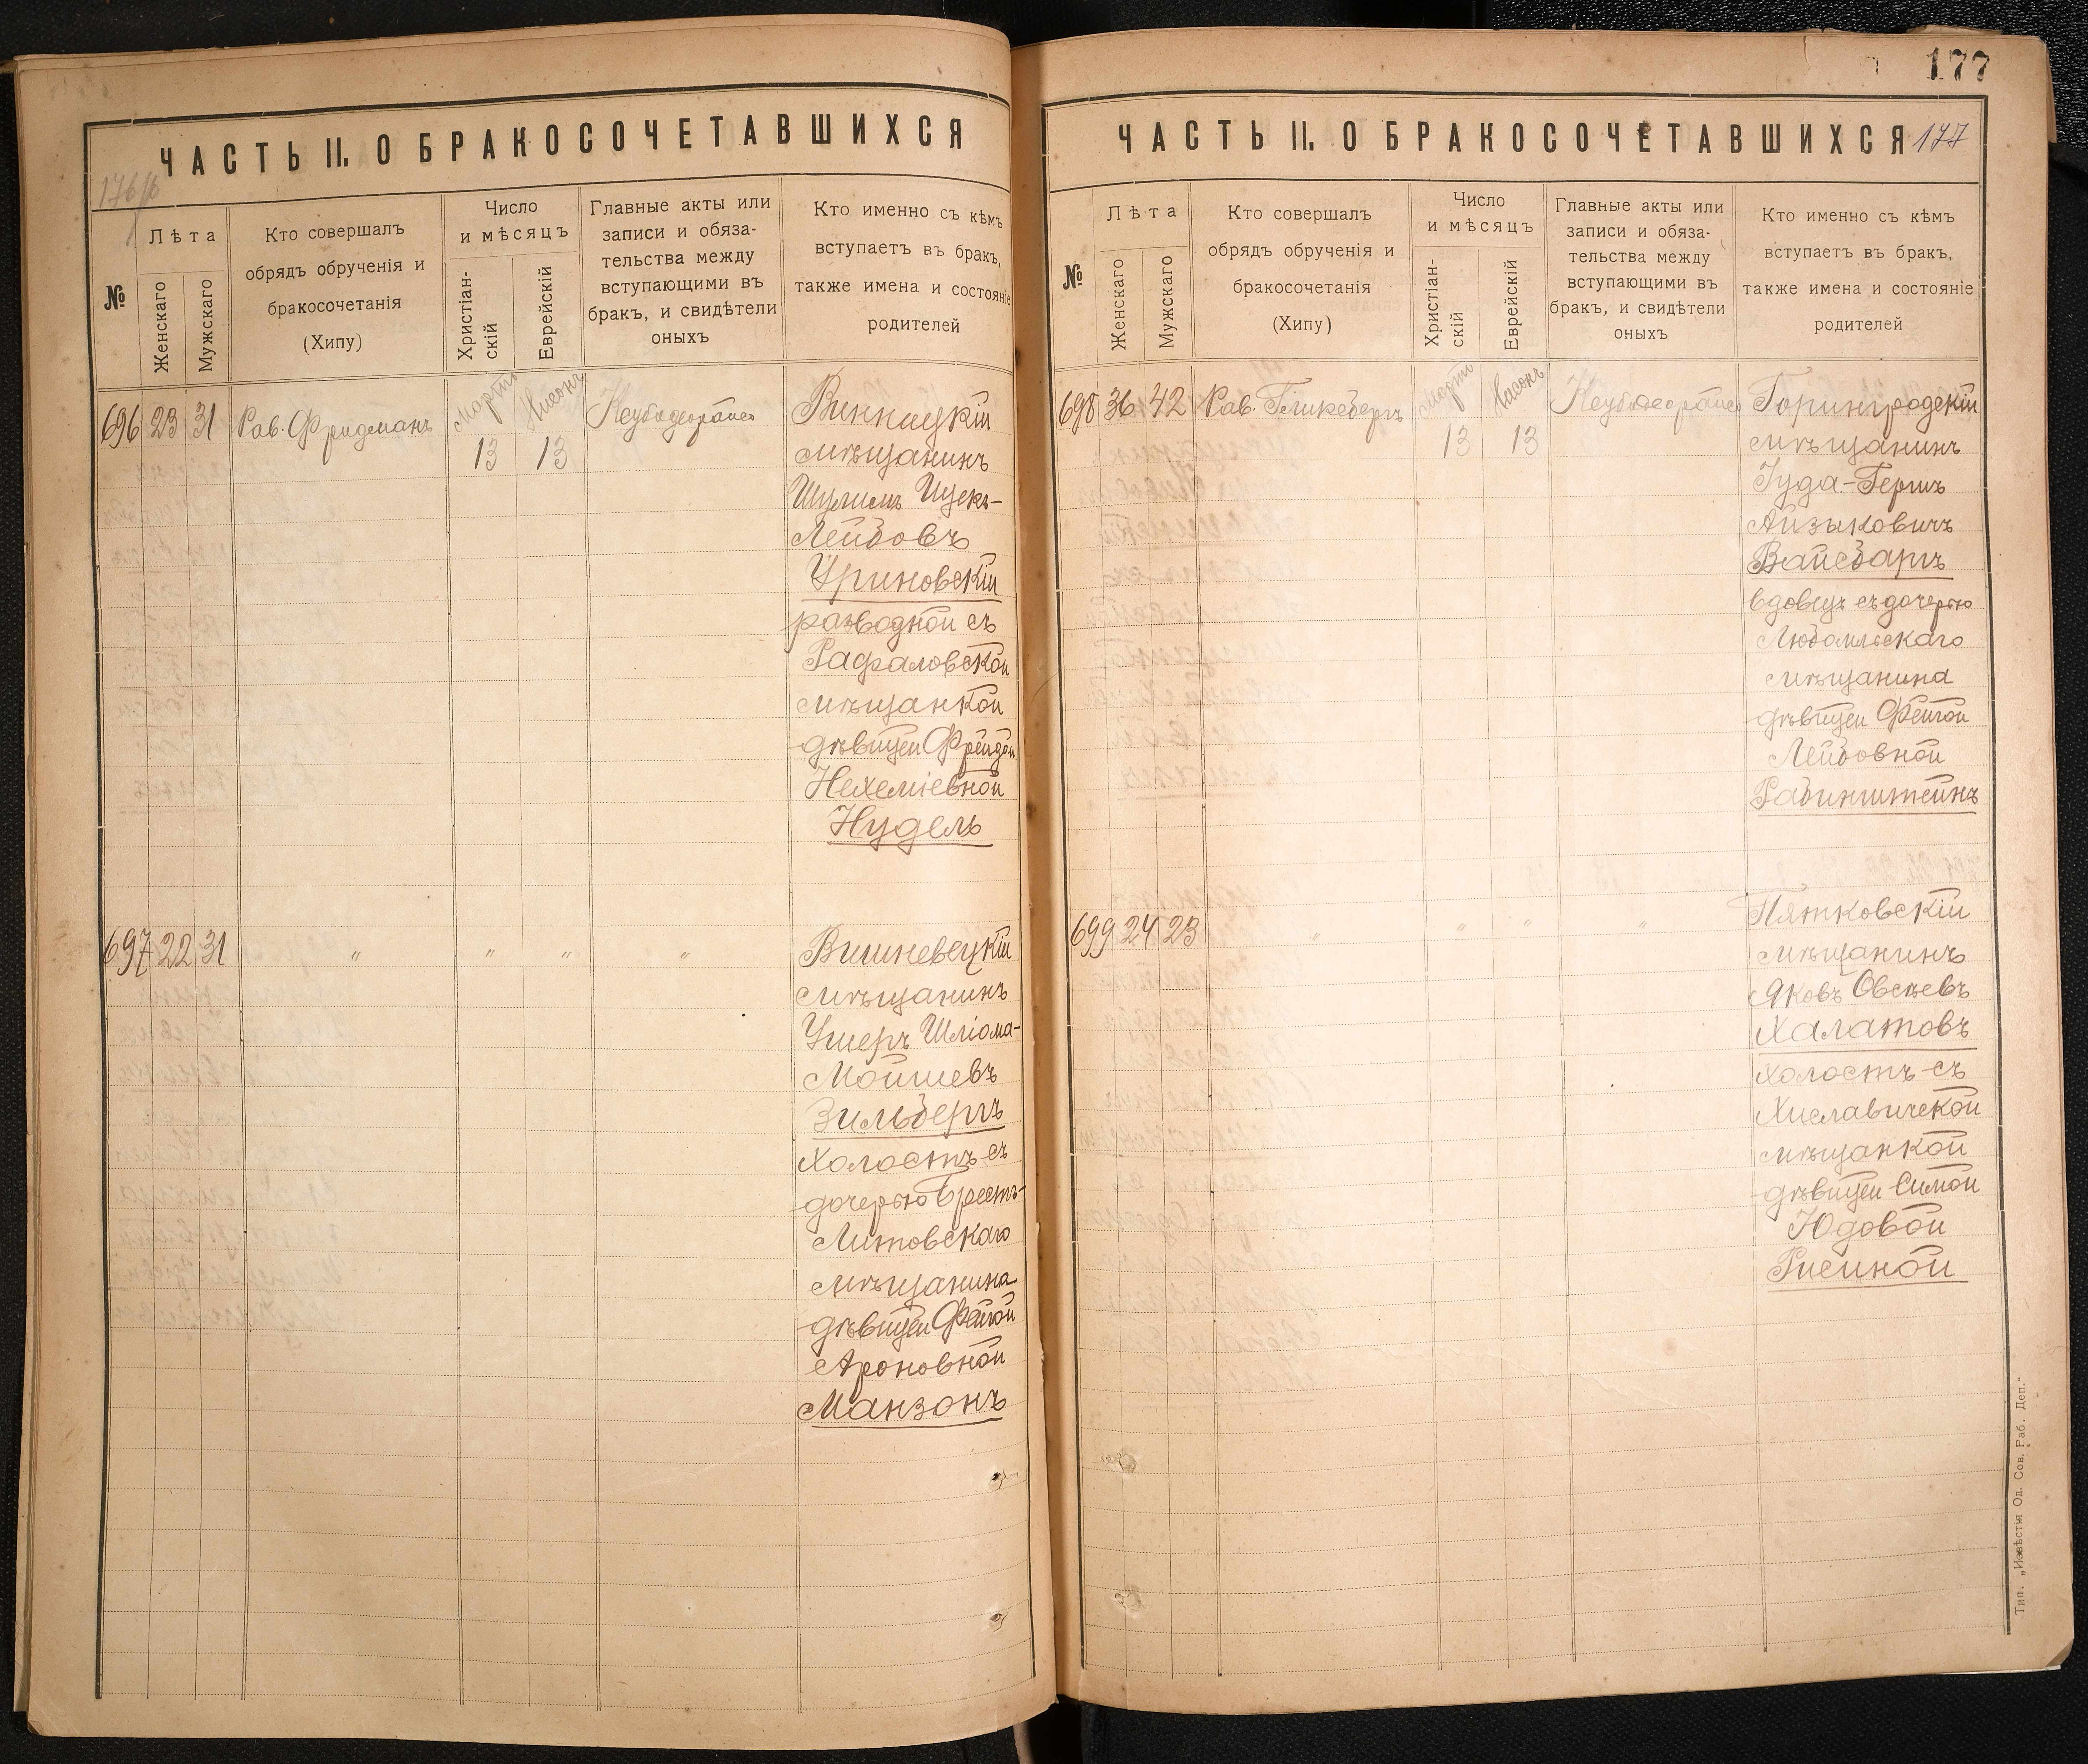 ЧАСТЬ II. О БРАКОСОЧЕТАВШИХСЯ
176 об
№
Лѣта
Женскаго
Мужскаго
Кто совершалъ
обрядъ обрученія и
бракосочетанія
(Хипу)
Число
и мѣсяцъ
Христіан-
скій
Еврейскій
Главные акты или
записи и обяза-
тельства между
вступающими въ
бракъ, и свидѣтели
оныхъ
Кто именно съ кѣмъ
вступаетъ въ бракъ,
также имена и состояніе
родителей
696 23 31 Рав. Фридманъ
Мартъ Нисонъ
13 13
Винницкій
мѣщанинъ
Шулимъ Ицекъ-
Лейбовъ
Уриновскій
разводной съ
Рафаловской
мѣщанкой
дѣвицей Фрейдой
Нехеміевной
Нудель
697 22 31 " " " "
Вишневецкій
мѣщанинъ
Ушеръ Шліома-
Мойшевъ
Зильбергъ
холостъ съ
дочерью Брестъ-
Литовскаго
мѣщанина
дѣвицей Фейгой
Ароновной
Манзонъ
177
ЧАСТЬ II. О БРАКОСОЧЕТАВШИХСЯ 177
№
Лѣта
Женскаго
Мужскаго
Кто совершалъ
обрядъ обрученія и
бракосочетанія
(Хипу)
Число
и мѣсяцъ
Христіан-
скій
Еврейскій
Главные акты или
записи и обяза-
тельства между
вступающими въ
бракъ, и свидѣтели
оныхъ
Кто именно съ кѣмъ
вступаетъ въ бракъ,
также имена и состояніе
родителей
698 36 42 Рав. Гликсбергъ
Мартъ Нисонъ
13 13
Горинградскій
мѣщанинъ
Іуда-Гершъ
Айзыковичъ
Вайсбаргъ
вдовецъ съ дочерью
Любомльскаго
мѣщанина
дѣвицей Фейгой
Лейбовной
Рабинштейнъ
699 24 23 " " " "
Пятковскій
мѣщанинъ
Яковъ Овсѣевъ
Халатовъ
холостъ съ
Хиславичской
мѣщанкой
дѣвицей Симой
Юдовой
Рисиной
Тип. „Извѣстія Од. Сов. Раб. Деп."